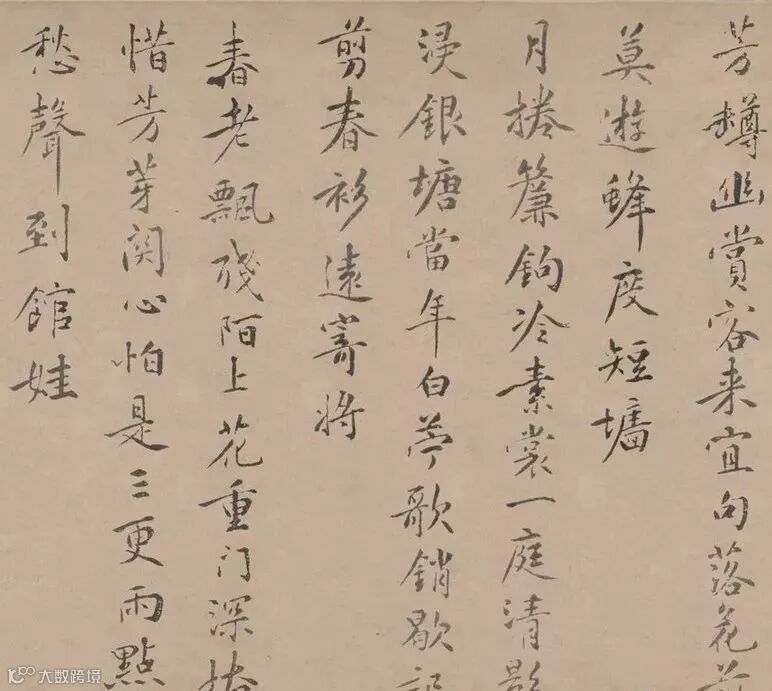 芳樽幽賞容来宜句落花
莫遊蜂度短墻
月捲簾鉤冷素裳一庭清影
浸銀塘當年白苧歌銷歇
剪春衫遠寄將
春老飄殘陌上花重門深掩
惜芳芽関心怕是三更雨點
愁聲到館娃
大数跨境